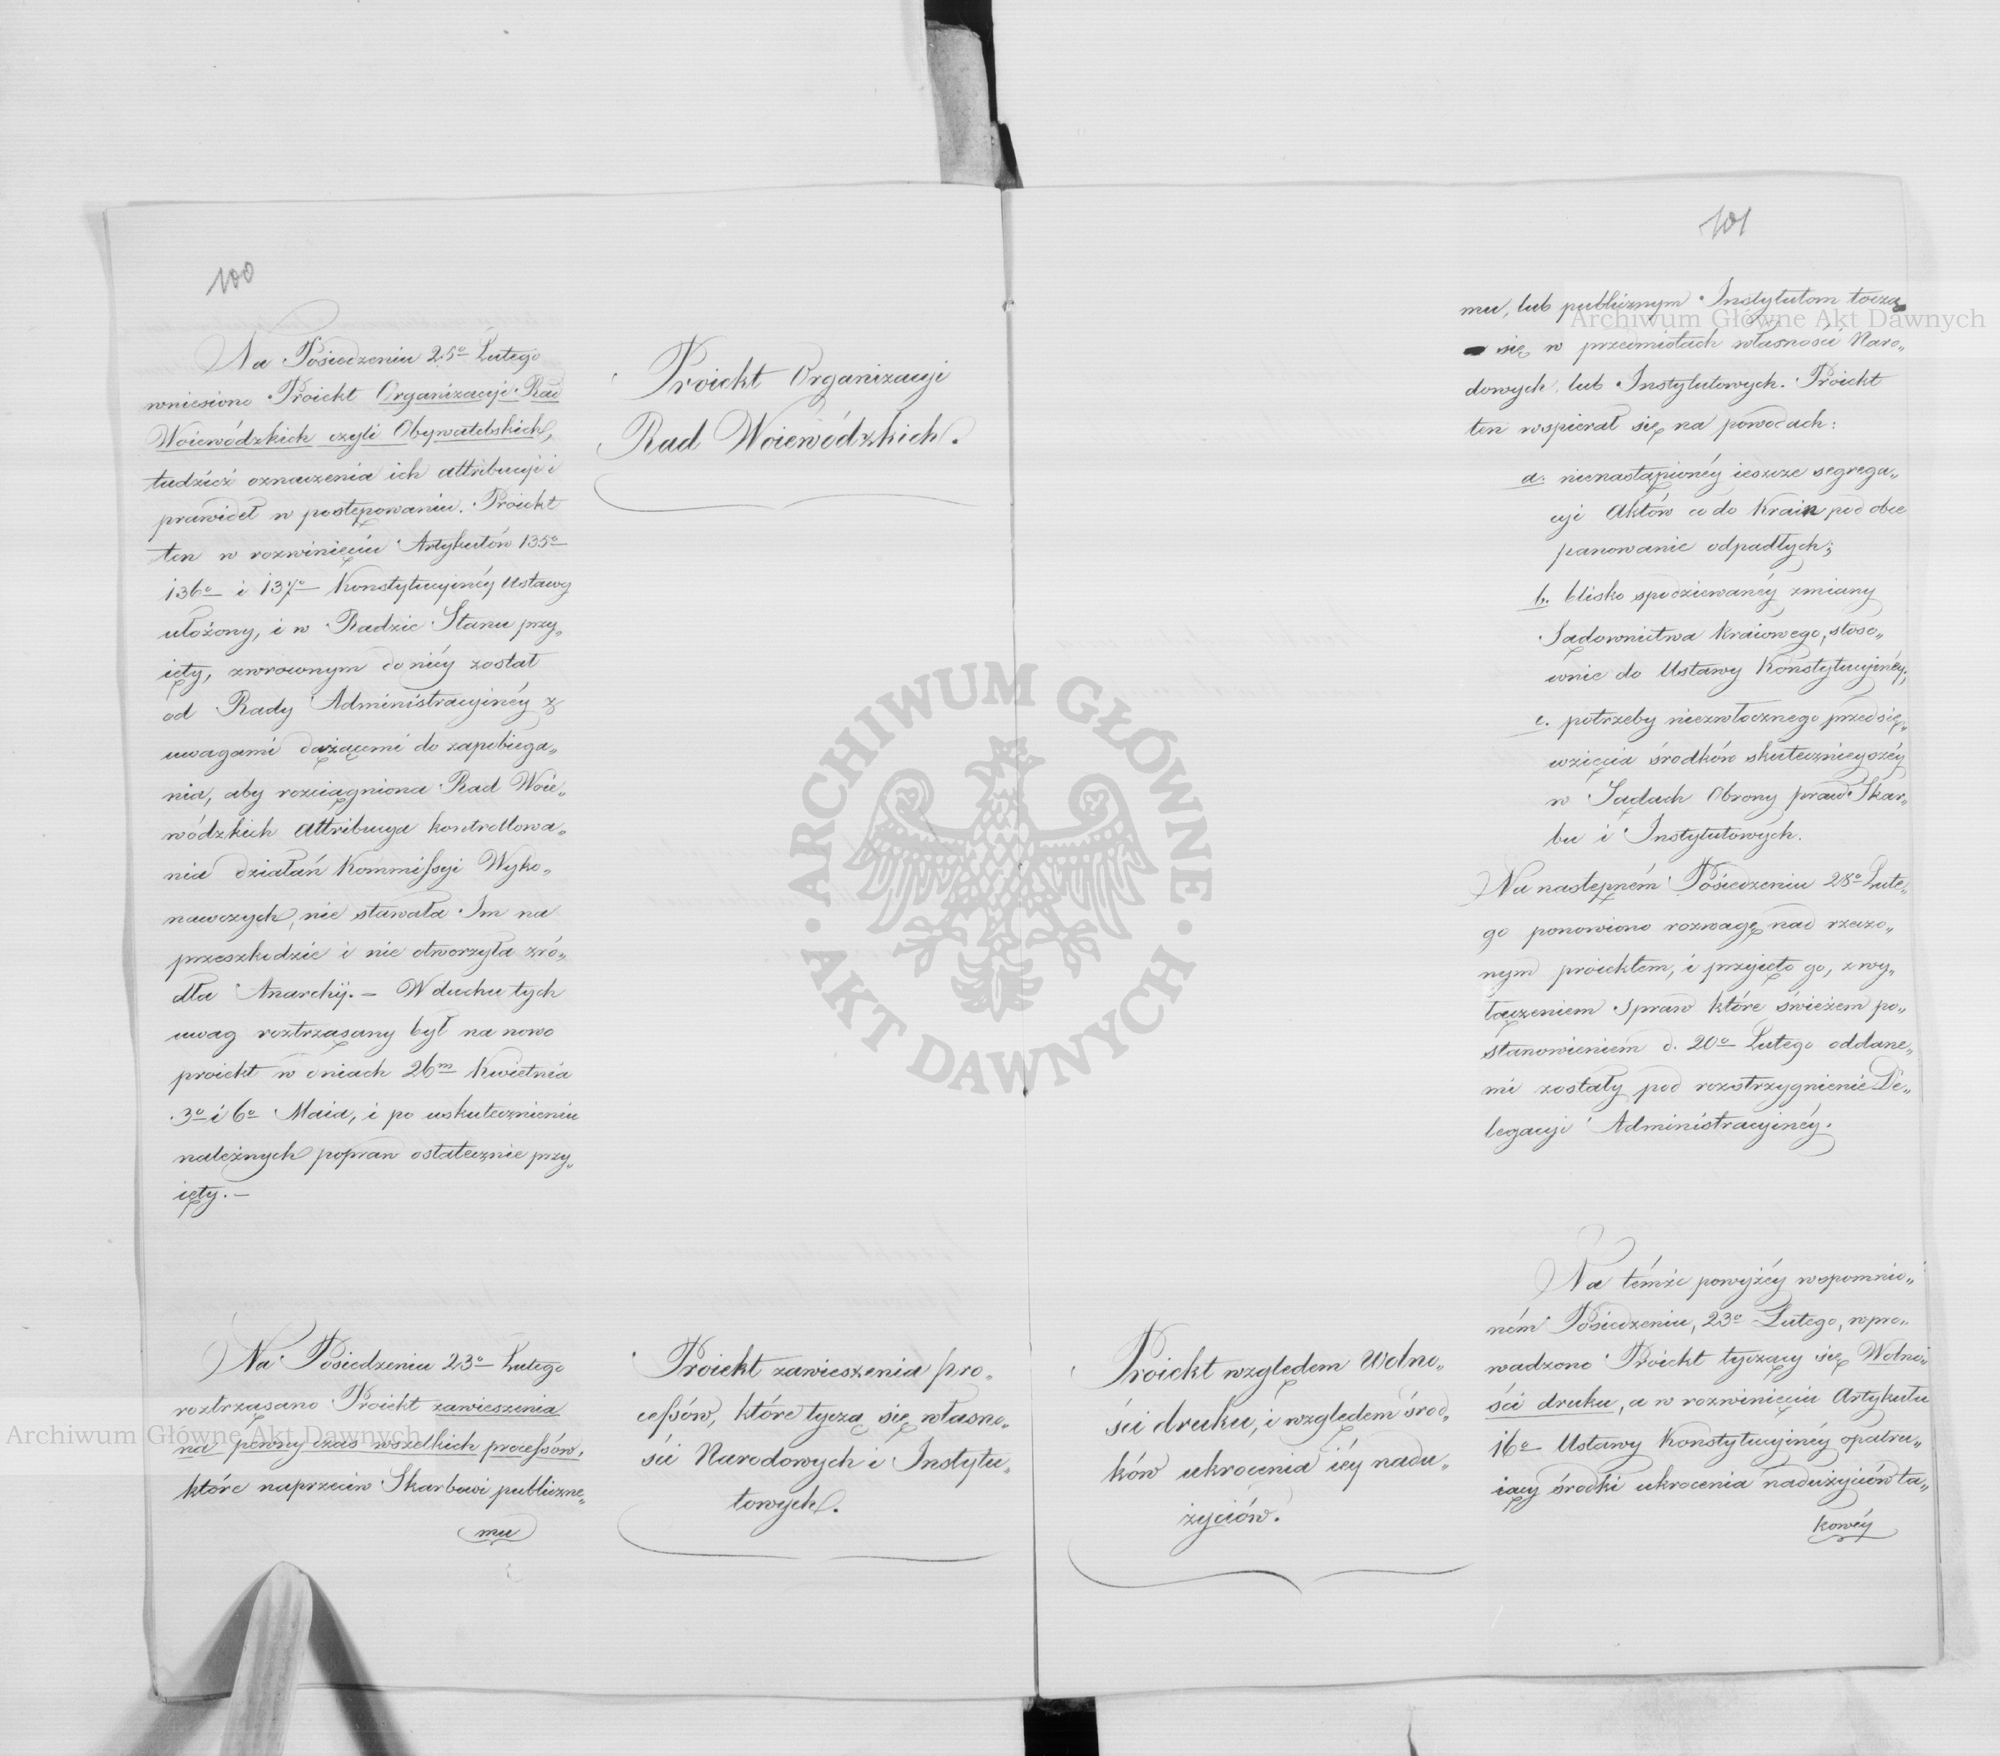 100
Na Posiedzeniu 25º Lutego
wniesiono Proiekt Organizacyi Rad
Woiewódzkich czyli Obywatelskich,
tudzież oznaczenia ich attribucyi i
prawideł w postępowaniu. Proiekt
ten w rozwinięciu Artykułów 135º
136º i 137º Konstytucyinéy Ustawy
ułożony, i w Radzie Stanu przy„
ięty, zwróconym do niéy został
od Rady Administracyinéy z
uwagami dążącemi do zapobiega„
nia, aby rozciągniona Rad Woie„
wódzkich attribucya kontrollowa„
nia działań Kommissyi Wyko„
nawczych, nie stawała Im na
przeszkodzie i nie otworzyła zró„
dła Anarchij. — W duchu tych
uwag roztrząsany był na nowo
proiekt w dniach 26m Kwietnia
3º i 6º Maia, i po uskutecznieniu
należnych popraw ostatecznie przy„
ięty. —
Proiekt Organizacyi
Rad Woiewódzkich.
Na Posiedzeniu 23º Lutego
roztrząsano Proiekt zawieszenia
na pewny czas wszelkich processów,
które naprzeciw Skarbowi publiczne„
mu
Proiekt zawieszenia pro„
cessów, które tyczą się własno„
ści Narodowych i Instytu„
towych.
101
mu, lub publicznym Instytutom toczą
się w przedmiotach własności Naro„
dowych lub Instytutowych. Proiekt
ten wspierał się na powodach:
a. nienastąpionéy ieszcze segrega„
cyi Aktów co do Krain pod obce
panowanie odpadłych;
b. blisko spodziewanéy zmiany
Sądownictwa Kraiowego, stoso„
wnie do Ustawy Konstytucyinéy;
c. potrzeby niezwłocznego przedsię„
wzięcia środków skutecznieyszéy
w Sądach Obrony praw Skar„
bu i Instytutowych.
Na następném Posiedzeniu 28º Lute„
go ponowiono rozwagę nad rzeczo„
nym proiektem, i przyięto go, z wy„
łączeniem Spraw które świeżem po„
stanowieniem d. 20º Lutego oddane„
mi zostały pod rozstrzygnienie De„
legacyi Administracyinéy.
Proiekt względem Wolno„
ści druku, i względem środ„
ków ukrócenia iéy nadu„
życiów.
Na témże powyżéy wspomnio„
ném Posiedzeniu, 23º Lutego, wpro„
wadzono Proiekt tyczący się Wolno„
ści druku, a w rozwinięciu Artykułu
16º Ustawy Konstytucyinéy opatru„
iący środki ukrócenia nadużyciów ta„
kowéy
Archiwum Główne Akt Dawnych
Archiwum Główne Akt Dawnych
ARCHIWUM GŁÓWNE · AKT DAWNYCH ·